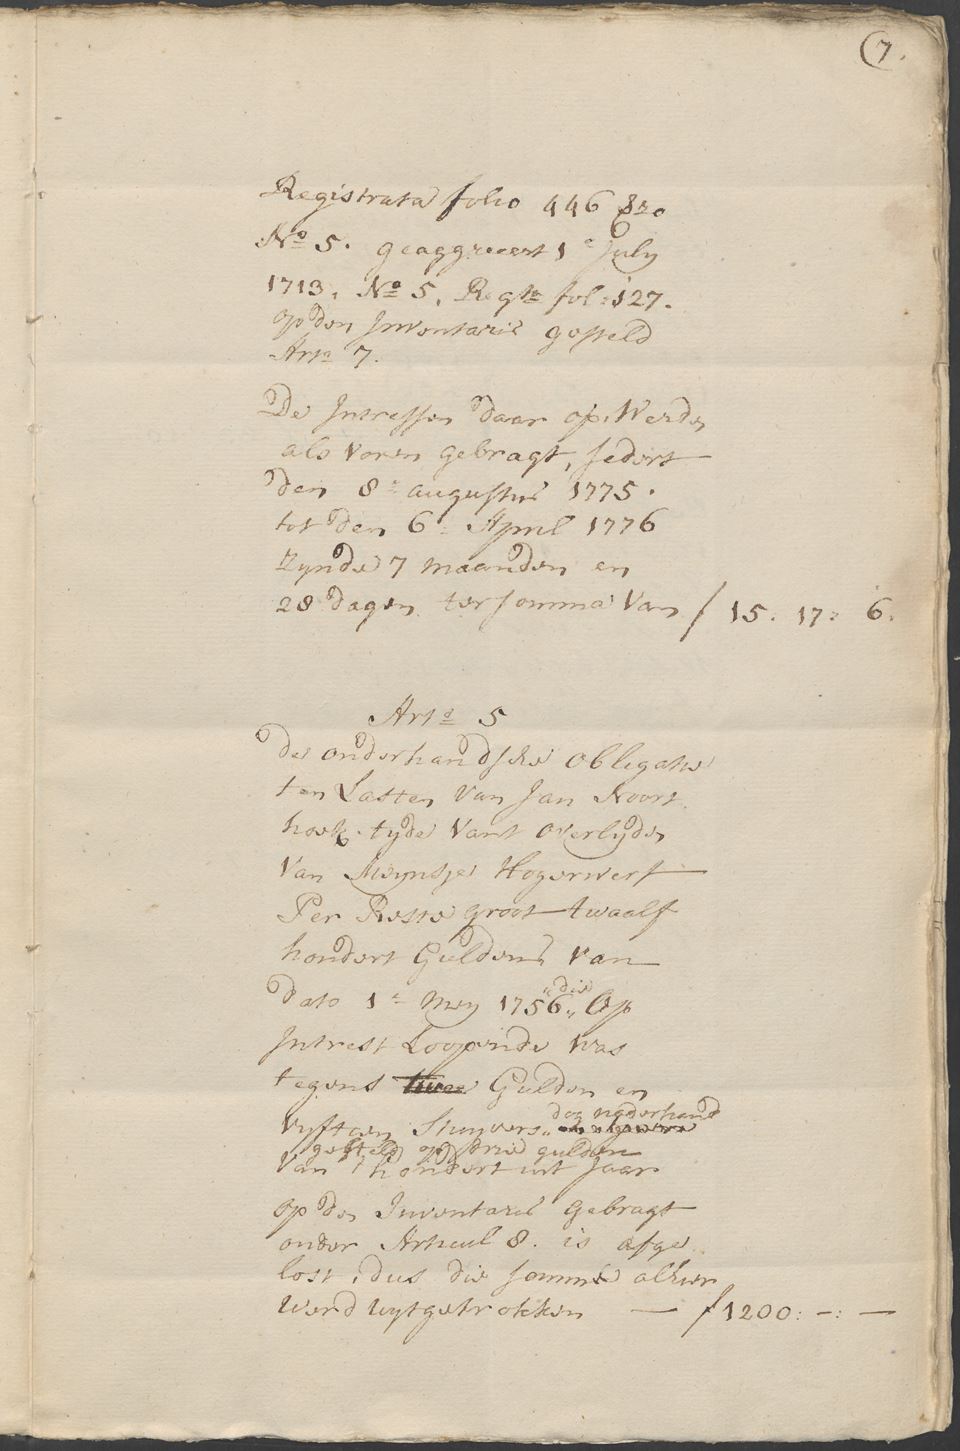 (7.
Registrata folio 446 Vzo
No 5. geaggreeert 1e July
1713, No 5, Regta fol: 127.
op den Inventaris gesteld
Arto 7.
De Intressen daar op Werden
als voren gebragt, sedert
den 8e augustus 1775.
tot den 6e April 1776
zynde 7 maanden en
28 dagen ter somma van f 15. 17: 6.
Arto 5
de onderhandsche obligatie
ten Lasten van Jan Noort
hoek. tyde vant overlyden
van Meynsje Hogerwerf
Per Reste groot twaalf
hondert Guldens van
dato 1e mey 1756 "die" Op
Intrest Loopende was
tegens twee Gulden en
vyftien Stuyvers "dog naderhand
gesteld op drie gulden
van 't hondert int Jaar
op den Inventaris gebragt
onder Articul 8. is afge
lost, dus die somme alhier
werd uytgetrokken — f 1200:-:—